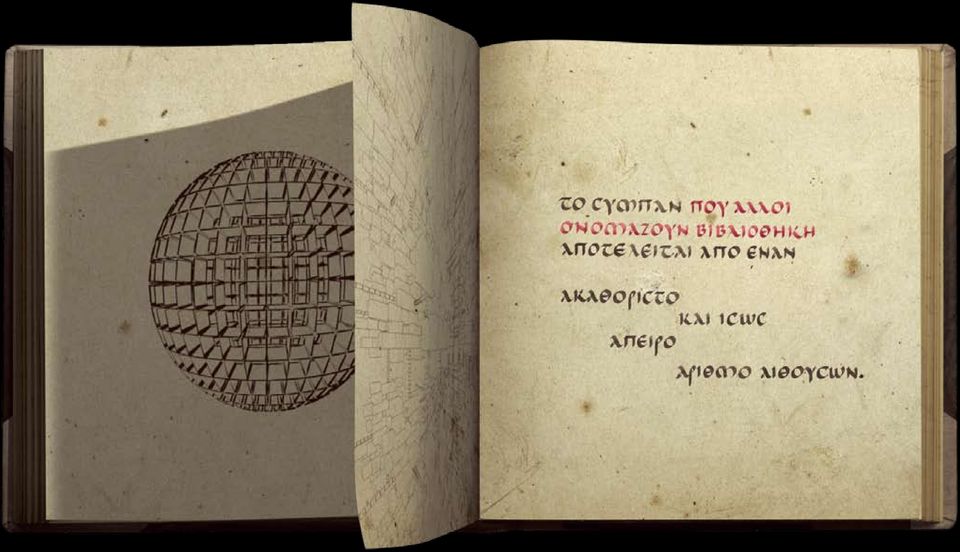 ΤΟ ϹΥΜΠΑΝ ΠΟΥ ΑΛΛΟΙ
ΟΝΟΜΑΖΟΥΝ ΒΙΒΛΙΟΘΗΚΗ
ΑΠΟΤΕΛΕΙΤΑΙ ΑΠΟ ΕΝΑΝ
ΑΚΑΘΟΡΙϹΤΟ
ΚΑΙ ΙϹΩϹ
ΑΠΕΙΡΟ
ΑΡΙΘΜΟ ΑΙΘΟΥϹΩΝ.